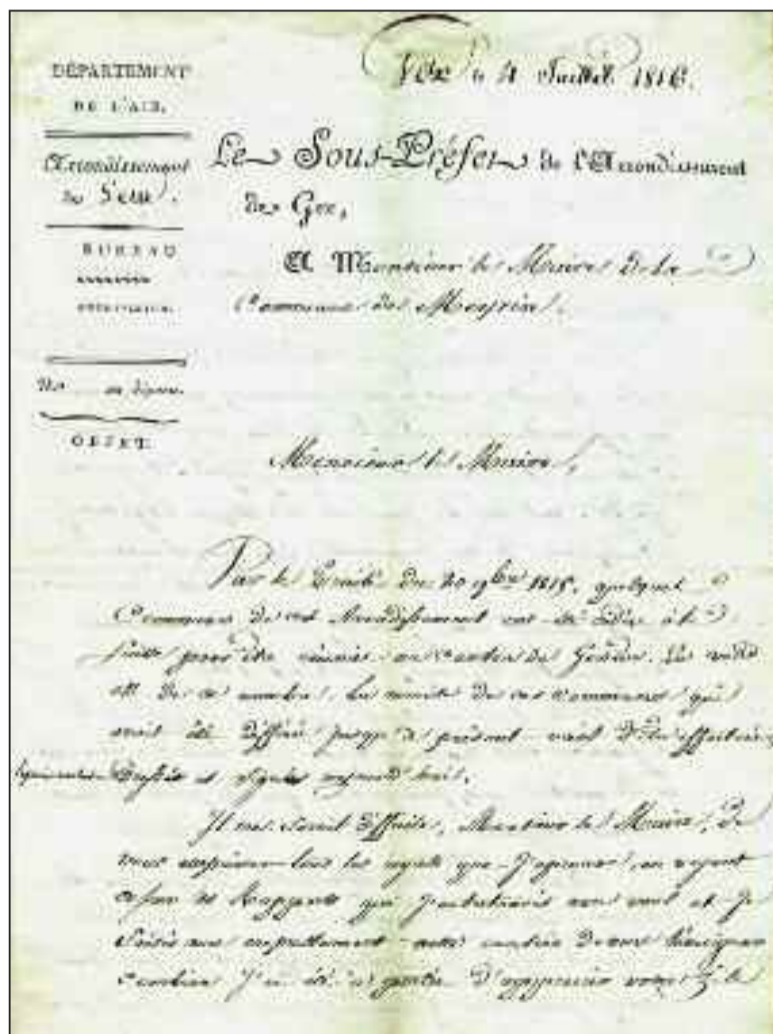 DÉPARTEMENT
DE L'AIN.
Arrondissement
de Gex.
BUREAU
OBJET.
Gex le 4 Juillet 1816.
Le Sous-Préfet de l'Arrondissement
de Gex,
A Monsieur le Maire de la
Commune de Meyrin.
Monsieur le Maire,
Par le Traité du 20 9bre 1815, quelques
Communes de cet Arrondissement ont été cédées à la
Suisse pour être réunies au Canton de Genève. La vôtre
est de ce nombre. La remise de ces Communes qui
avait été différée jusqu'à présent vient d'être effectuée
signés aujourd'hui.
Il me serait difficile, Monsieur le Maire, de
vous exprimer tous les regrets que j'éprouve, en voyant
cesser les Rapports que j'entretenais avec vous et je
saisis avec empressement cette occasion de vous témoigner
combien j'ai été à portée d'apprécier votre zèle